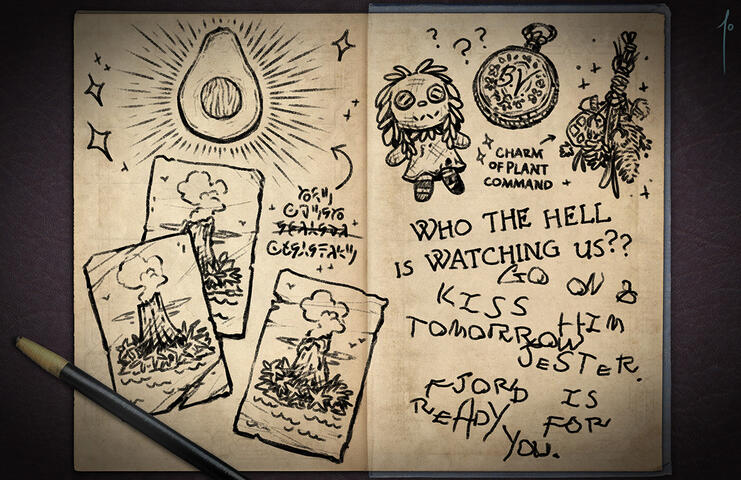 ? ? ?
CHARM
OF PLANT
COMMAND
WHO THE HELL
IS WATCHING US??
GO ON &
KISS HIM
TOMORROW
JESTER.
FJORD IS
READY FOR
YOU.